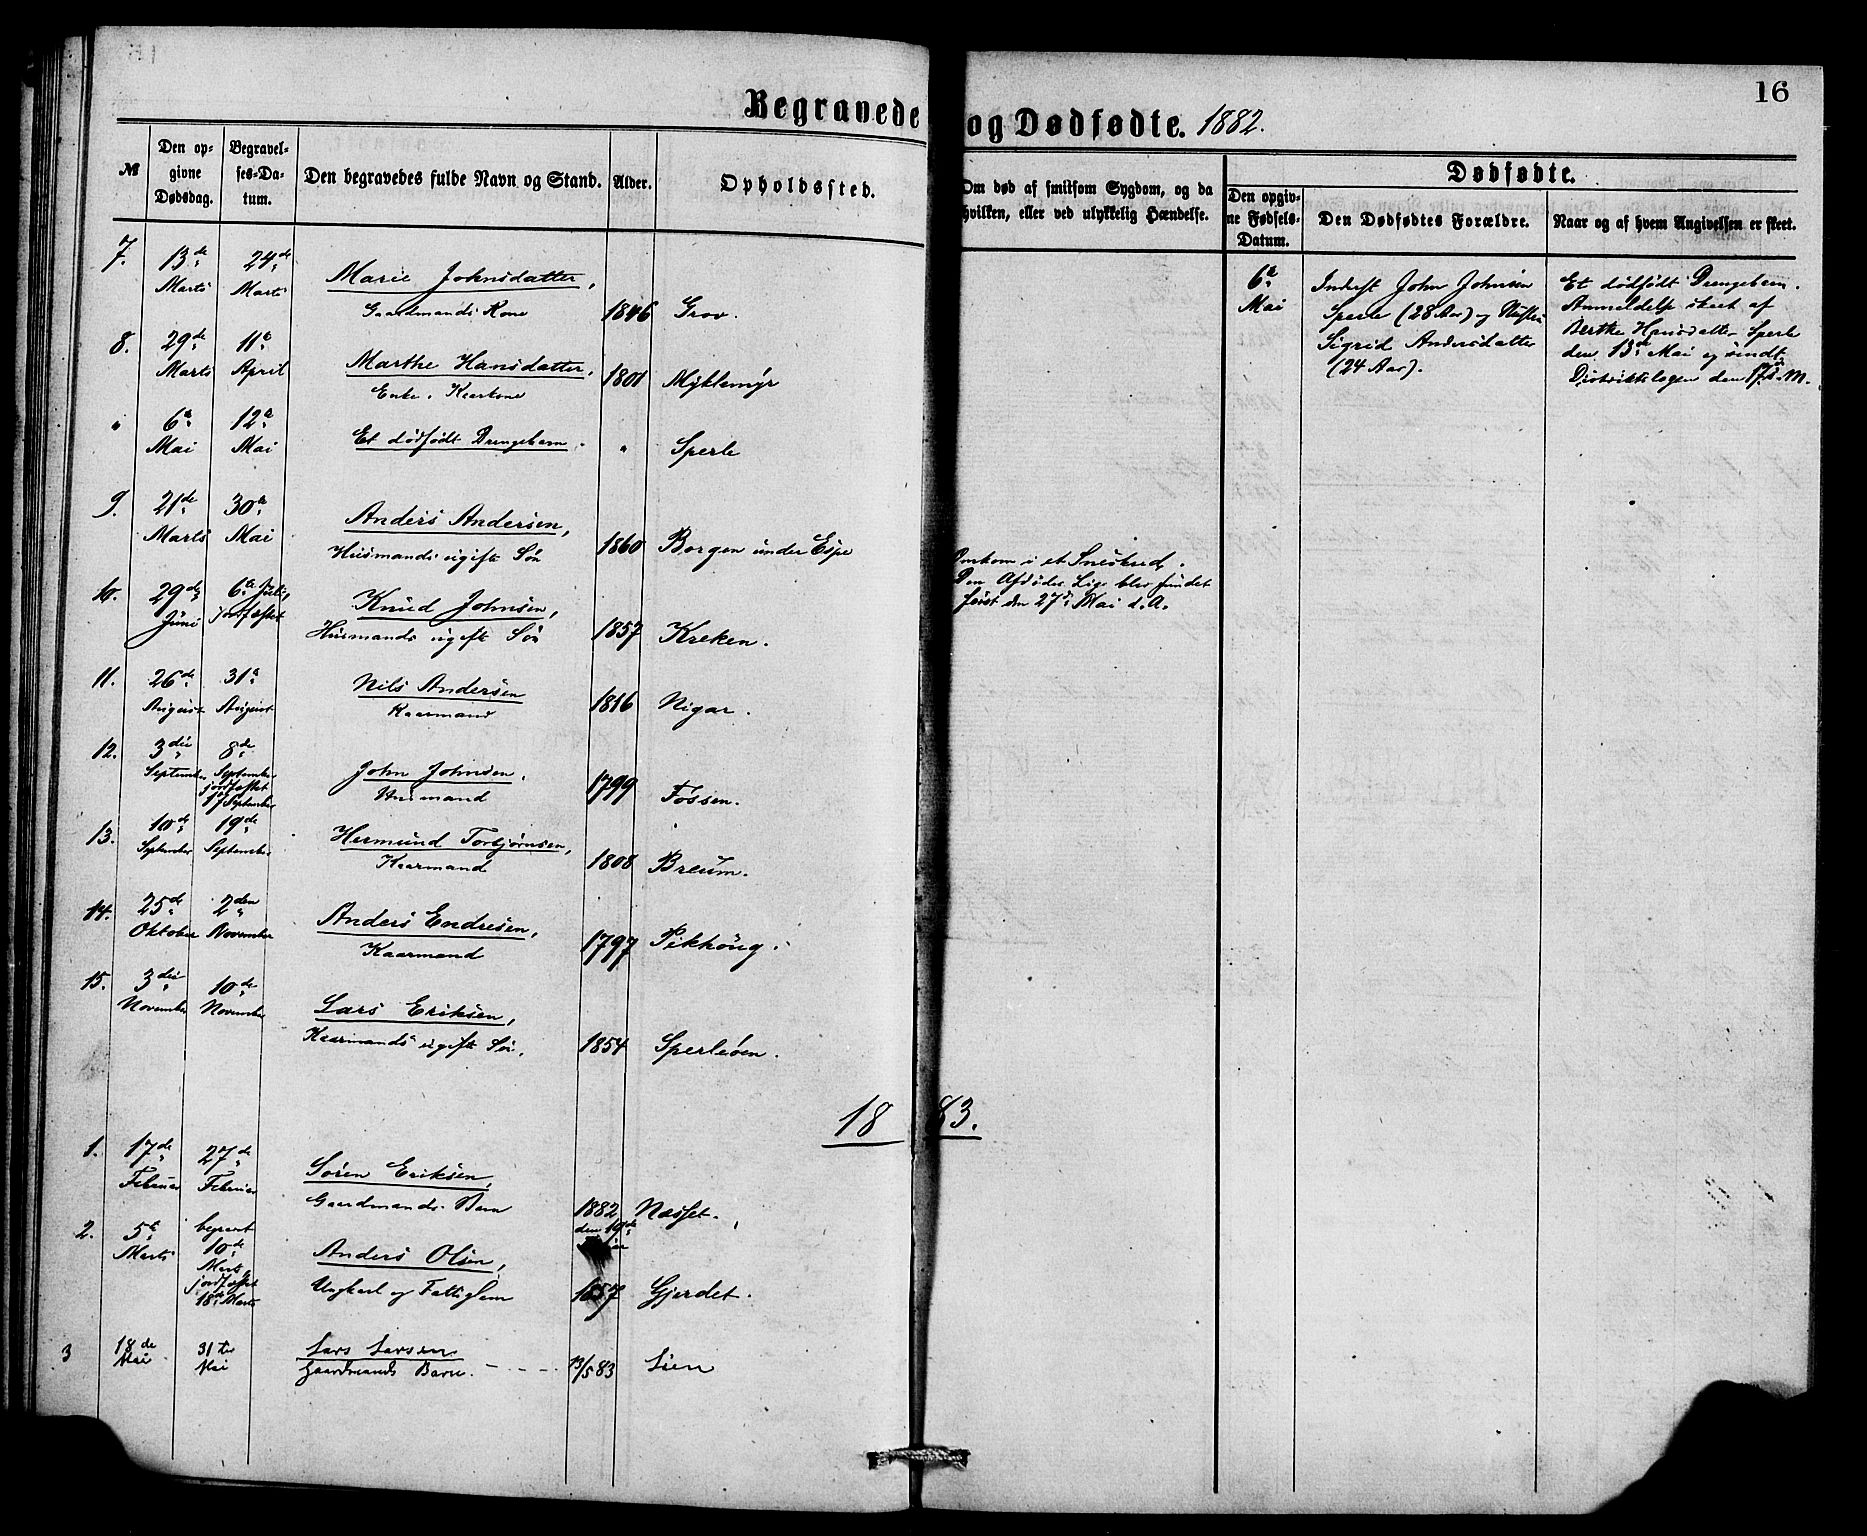 16
Begravede og Dødfødte. 1882.
№
Den opgivne Dødsdag.
Begravelses-Datum.
Den begravedes fulde Navn og Stand.
Alder.
Opholdssted.
Om død af smitsom Sygdom, og da hvilken, eller ved ulykkelig Hændelse.
Dødfødte.
Den opgivne Fødsels-Datum.
Den Dødfødtes Forældre.
Naar og af hvem Angivelsen er skeet.
7. 13de Marts 24de Marts Marie Johnsdatter, Gaardmands Kone 1846 Grov.
8. 29de Marts 11te April Marthe Hansdatter, Enke. Kaarkone 1801 Myklemyr
" 6te Mai 12te Mai Et dödfödt Drengebarn. " Sperle
6te Mai
Inderst John Johnsen
Sperle (28 Aar) og Hustru
Sigrid Andersdatter
(24 Aar).
Et dödfödt Drengebarn.
Anmeldelse skeet af
Berthe Hansdatter Sperle
den 13de Mai og sendt
Distriktslægen den 17de s. M.
9. 21de Marts 30te Mai Anders Andersen, Husmands ugifte Sön 1860 Borgen under Espe
Omkom i et Sneskred.
Den Afdödes Lig blev fundet
först den 27de Mai d. A.
10. 29de Juni 6te Juli, jordfæstet Knud Johnsen, Husmands ugifte Sön 1857 Kreken.
11. 26de August 31te August Nils Andersen Kaarmand 1816 Nigar.
12. 3die September 8de September jordfæstet 17 September John Johnsen. Husmand 1799 Fossen.
13. 10de September 19de September Hermund Torbjørnsen, Kaarmand 1808 Breum.
14. 25de Oktober 2den November Anders Endresen, Kaarmand 1797 Pikhoug.
15. 3die November 10de November Lars Eriksen, Kaarmands ugifte Sön. 1854 Sperleöen.
1883.
1. 17de Februar 27de Februar Sören Eriksen, Gaardmands Barn 1882 den 19de Næsset.
2. 5te Marts begravet 10de Marts jordfæstet 18de Marts Anders Olsen, Ungkarl og Fattiglem 1857 Gjerdet.
3 18de Mai 31te Mai Lars Larsen Gaardmands Barn. 13/5 83 Lien